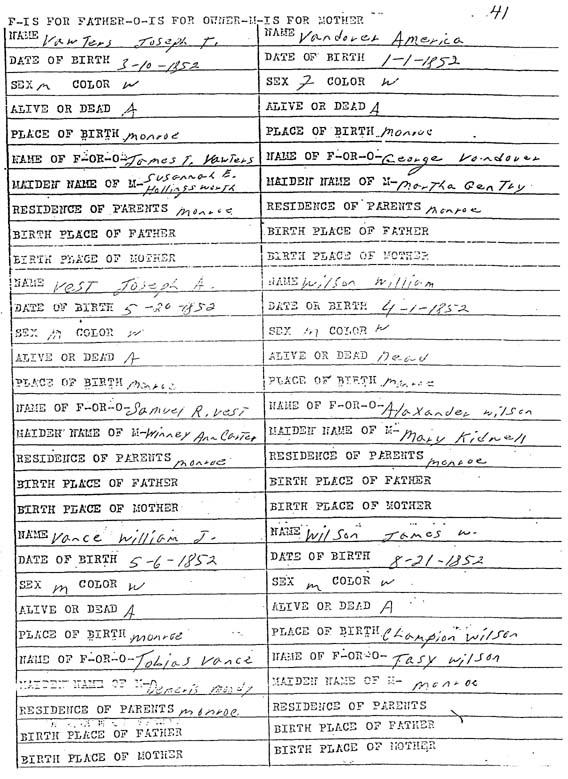 41
F-IS FOR FATHER-O-IS FOR OWNER-M-IS FOR MOTHER
NAME Vawters Joseph T.
DATE OF BIRTH 3-10-1852
SEX m COLOR w
ALIVE OR DEAD A
PLACE OF BIRTH monroe
NAME OF F-OR-O- James T. Vawters
MAIDEN NAME OF M- Susannah E. Hollingsworth
RESIDENCE OF PARENTS monroe
BIRTH PLACE OF FATHER
BIRTH PLACE OF MOTHER
NAME Vest Joseph A.
DATE OF BIRTH 5-20-1852
SEX m COLOR w
ALIVE OR DEAD A
PLACE OF BIRTH monroe
NAME OF F-OR-O- Samuel R. Vest
MAIDEN NAME OF M- Winney Ann Carter
RESIDENCE OF PARENTS monroe
BIRTH PLACE OF FATHER
BIRTH PLACE OF MOTHER
NAME Vance William J.
DATE OF BIRTH 5-6-1852
SEX m COLOR w
ALIVE OR DEAD A
PLACE OF BIRTH monroe
NAME OF F-OR-O- Tobias Vance
MAIDEN NAME OF M-
RESIDENCE OF PARENTS monroe
BIRTH PLACE OF FATHER
BIRTH PLACE OF MOTHER
NAME Vandover America
DATE OF BIRTH 1-1-1852
SEX F COLOR w
ALIVE OR DEAD A
PLACE OF BIRTH monroe
NAME OF F-OR-O- George Vandover
MAIDEN NAME OF M- Martha Gentry
RESIDENCE OF PARENTS monroe
BIRTH PLACE OF FATHER
BIRTH PLACE OF MOTHER
NAME Wilson William
DATE OR BIRTH 4-1-1852
SEX m COLOR w
ALIVE OR DEAD Dead
PLACE OF BIRTH monroe
NAME OF F-OR-O- Alaxander Wilson
MAIDEN NAME OF M- Mary Kidwell
RESIDENCE OF PARENTS monroe
BIRTH PLACE OF FATHER
BIRTH PLACE OF MOTHER
NAME Wilson James W.
DATE OF BIRTH 8-21-1852
SEX m COLOR w
ALIVE OR DEAD A
PLACE OF BIRTH Champion Wilson
NAME OF F-OR-O- Tasy Wilson
MAIDEN NAME OF M- monroe
RESIDENCE OF PARENTS
BIRTH PLACE OF FATHER
BIRTH PLACE OF MOTHER